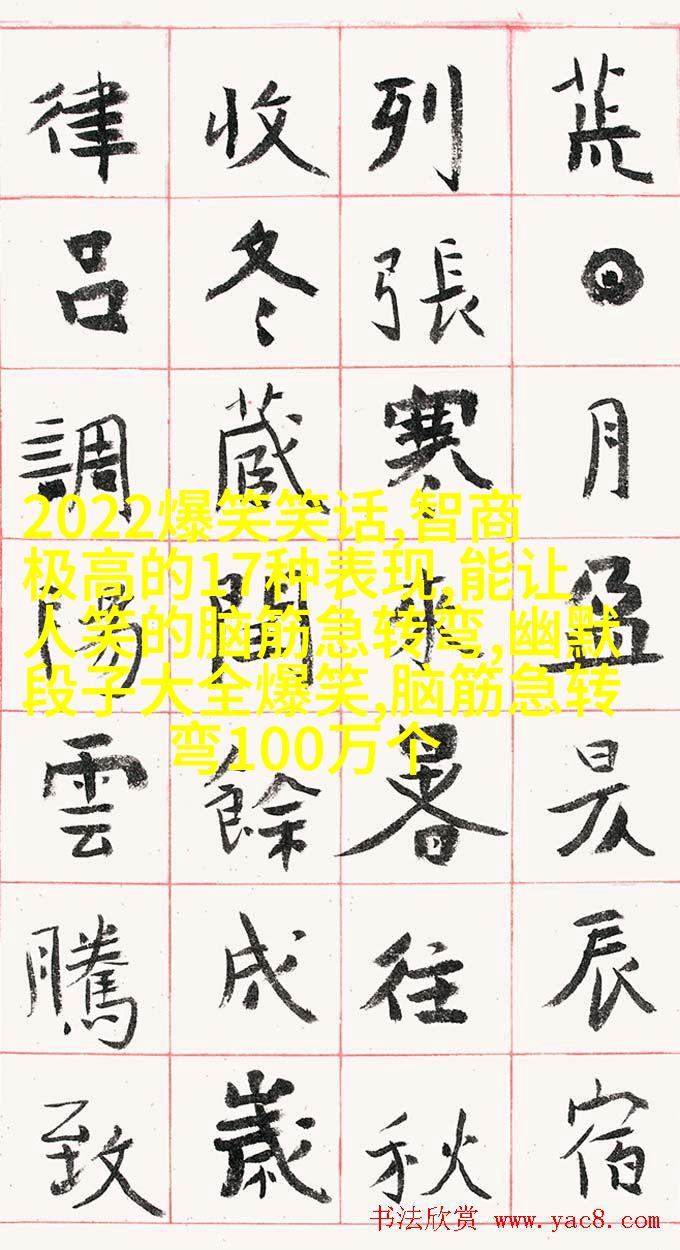 荒日月盈昃辰宿
列張寒來暑往秋
收冬藏閏餘成歲
律吕調陽雲騰致
2022爆笑笑话,智商
极高的17种表现,能让
人笑的脑筋急转弯,幽默
段子大全爆笑,脑筋急转
弯100万个
书法欣赏 www.yac8.com